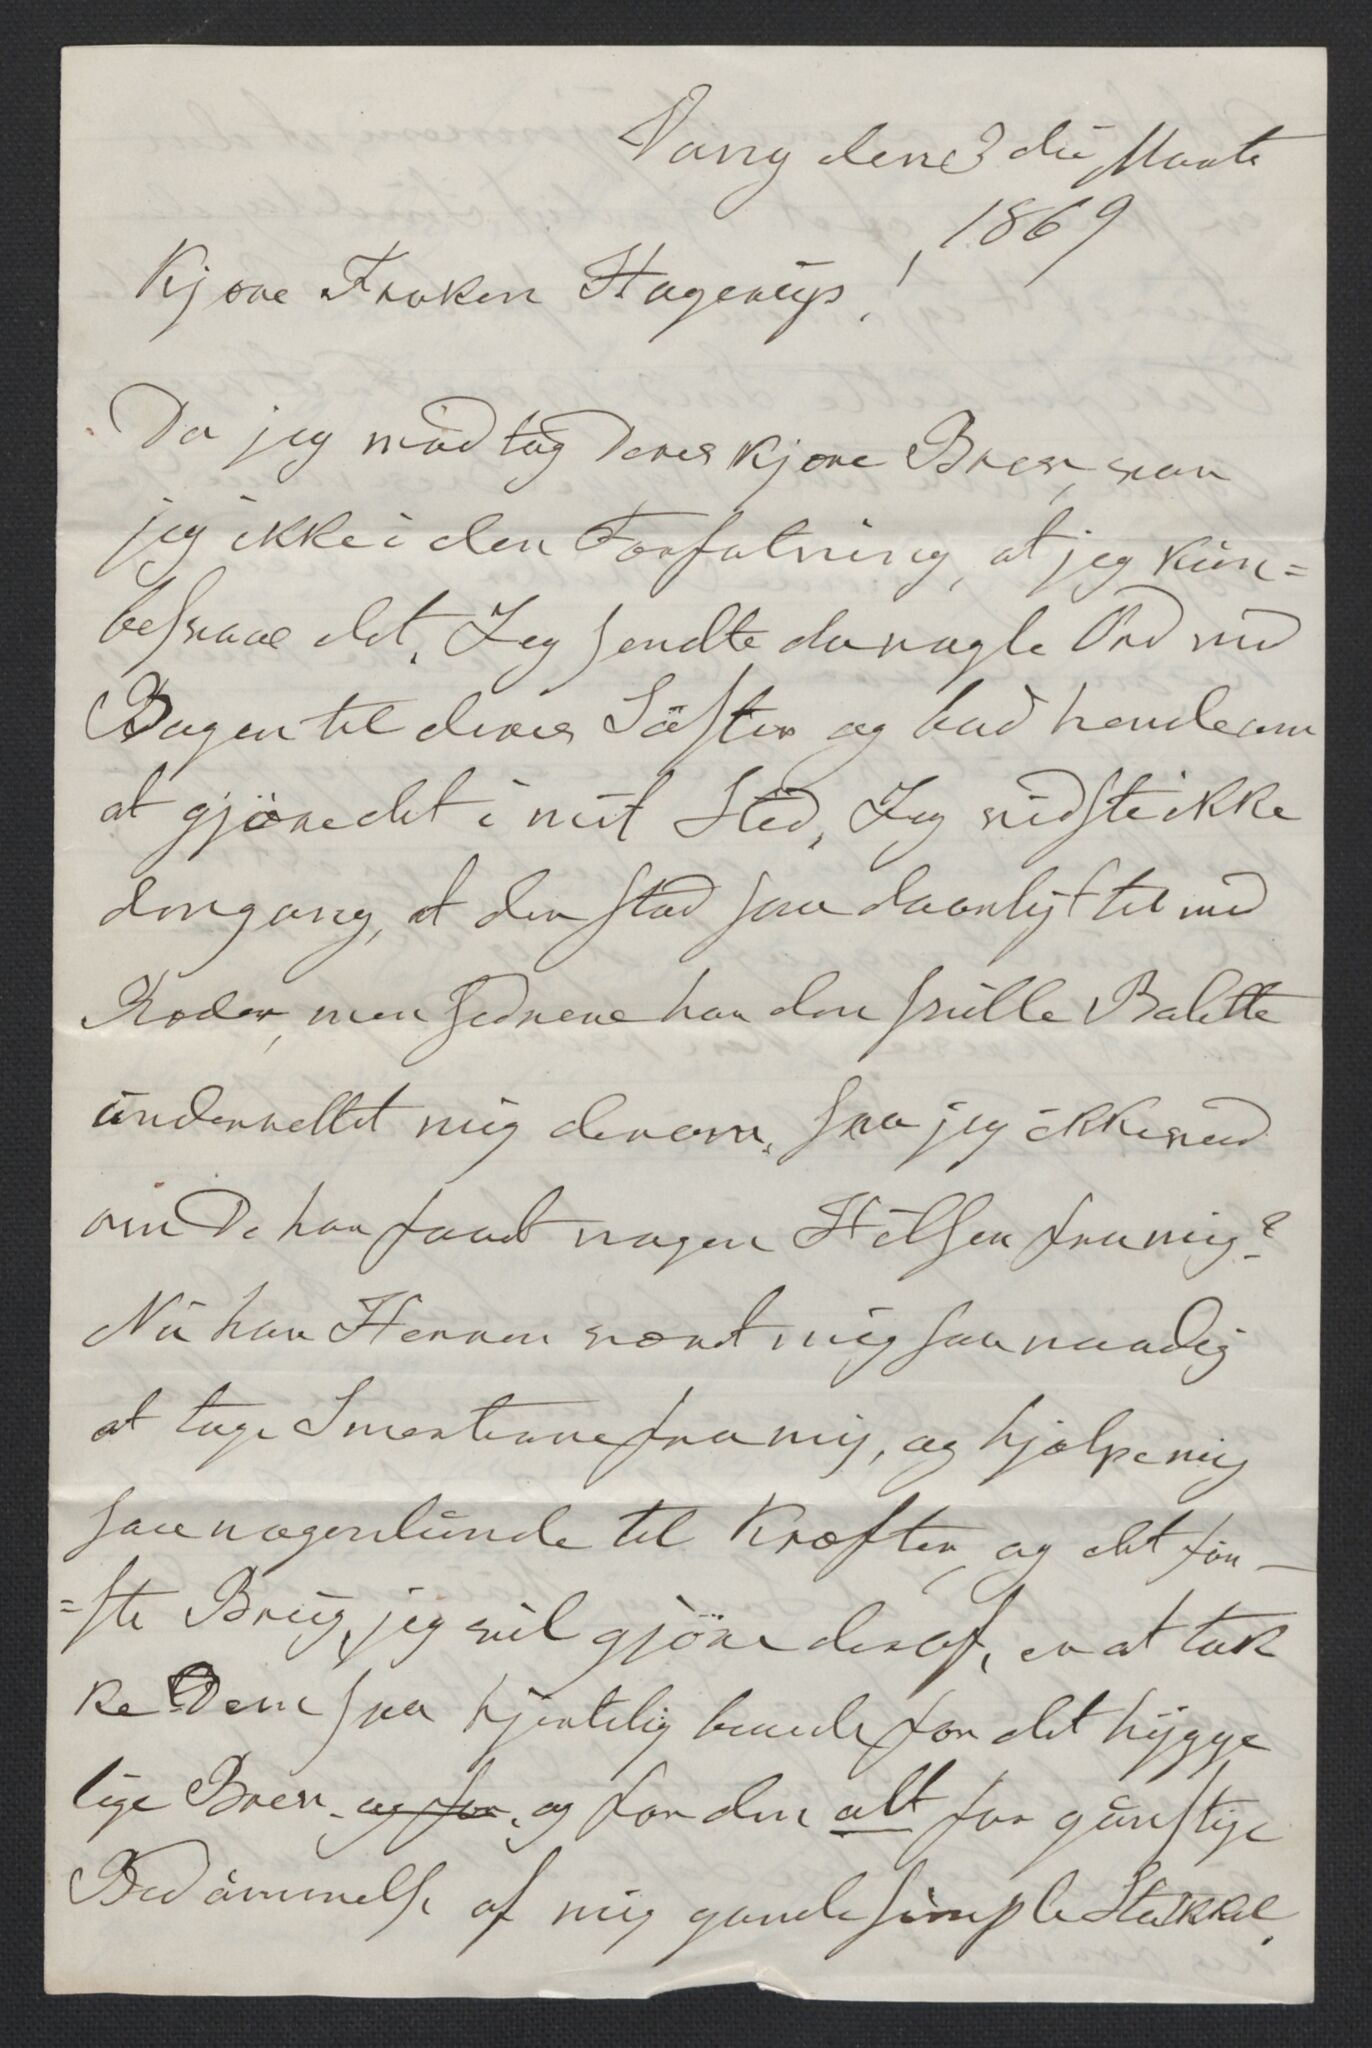 Vang den 3die Marts
1869
Kjære Frøken Hagerup!
Da jeg modtog Deres kjære Brev, var
jeg ikke i den Forfatning, at jeg kun=
besvare det. Jeg sendte da nogle Ord ved
Bogen til deres Söster og bad hende om
at gjöre det i mit Sted. Jeg vidste ikke
dengang, at der stod saa daarligt til med
Moder, men senere har den snille Balette
underrettet mig derom, saa jeg ikke ved
om De har faaet nogen Hilsen fra mig?
Nu har Herren været mig saa naadig
at tage Smerterne fra mig, og hjælpe mig
saa nogenlunde til Kræfter, og detför-
=ste Brug, jeg vil gjöre deraf, er at tak
ke Dem saa hjertelig baade for det hygge
lige Brev, og for, og for den alt for gunstige
Bedömmelse af mig gamle simple Stakkel.